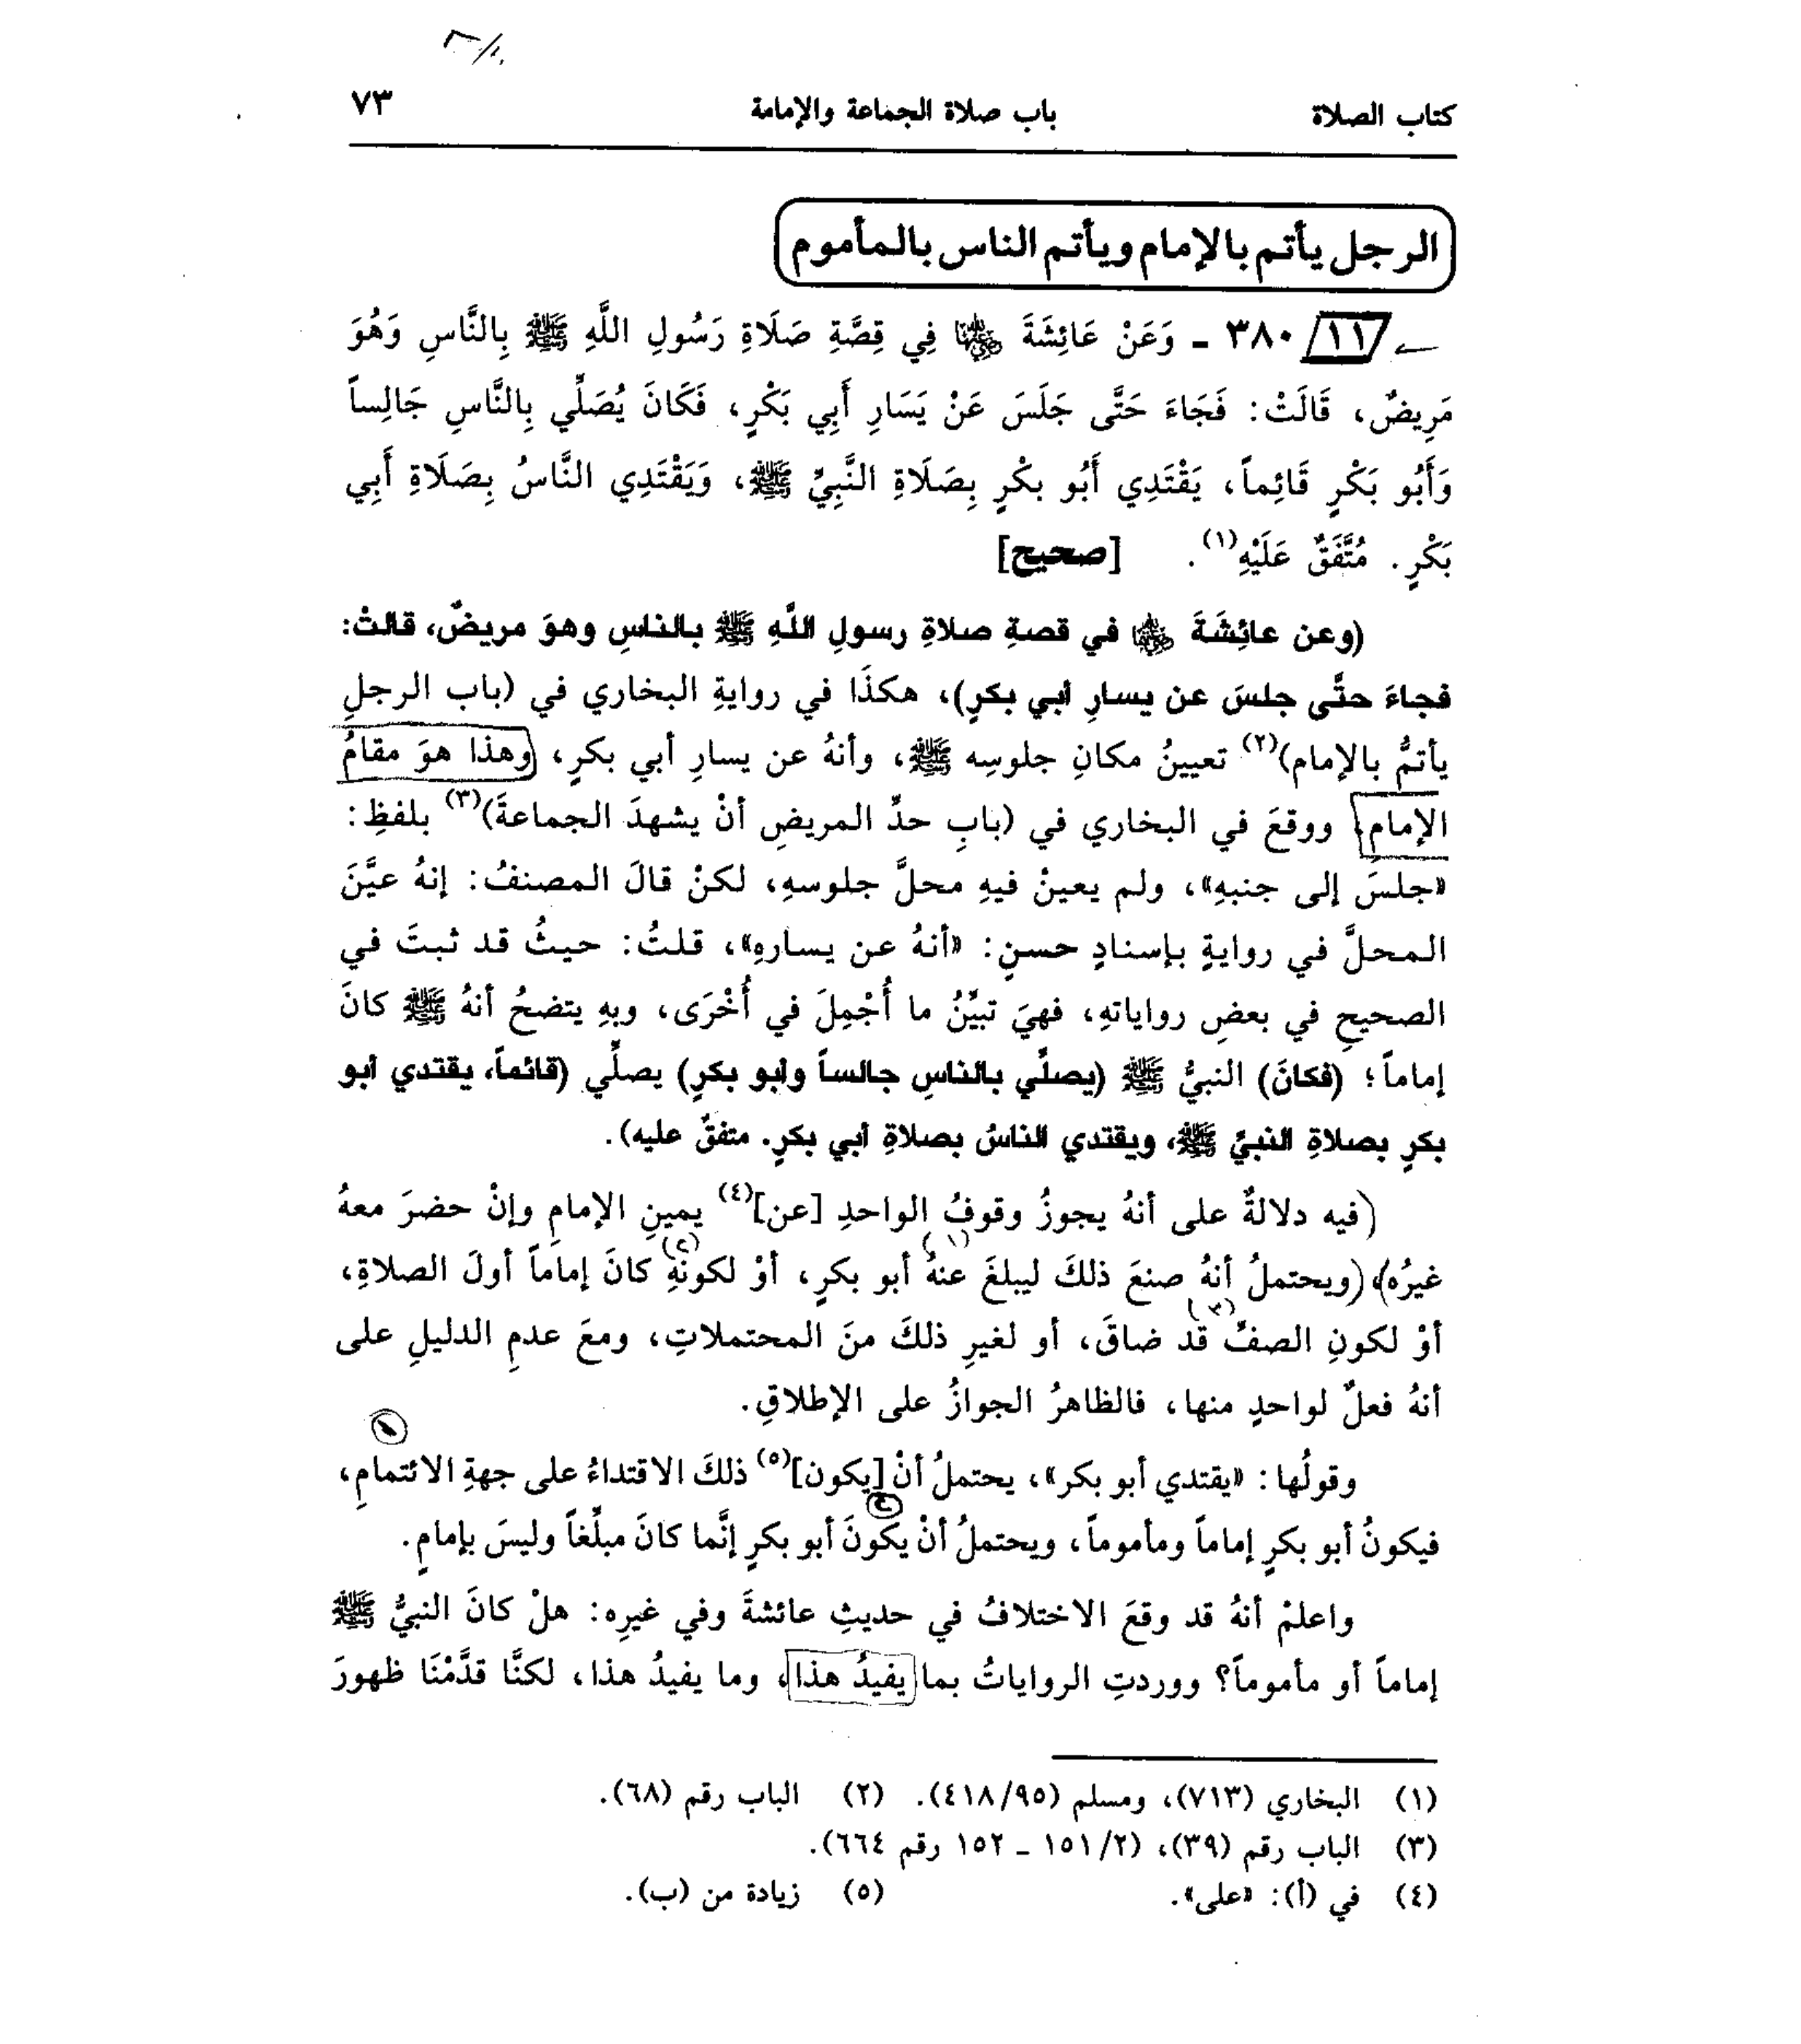 كتاب الصلاة باب صلاة الجماعة والإمامة ٧٣
الرجل يأتم بالإمام ويأتم الناس بالمأموم
١١/٣٨٠ - وَعَنْ عَائِشَةَ رضي الله عنها فِي قِصَّةِ صَلَاةِ رَسُولِ اللَّهِ ﷺ بِالنَّاسِ وَهُوَ
مَرِيضٌ، قَالَتْ: فَجَاءَ حَتَّى جَلَسَ عَنْ يَسَارِ أَبِي بَكْرٍ، فَكَانَ يُصَلِّي بِالنَّاسِ جَالِساً
وَأَبُو بَكْرٍ قَائِماً، يَقْتَدِي أَبُو بكْرٍ بِصَلَاةِ النَّبِيِّ ﷺ، وَيَقْتَدِي النَّاسُ بِصَلَاةِ أَبِي
بَكْرٍ. مُتَّفَقٌ عَلَيْهِ(١). [صحيح]
(وعن عائِشَةَ رضي الله عنها في قصةِ صلاةِ رسولِ اللَّهِ ﷺ بالناسِ وهوَ مريضٌ، قالتْ:
فجاءَ حتَّى جلسَ عن يسارِ أبي بكرٍ)، هكذَا في روايةِ البخاري في (باب الرجلِ
يأتمُّ بالإمام)(٢) تعيينُ مكانِ جلوسِه ﷺ، وأنهُ عن يسارِ أبي بكرٍ، وهذا هوَ مقامُ
الإمامِ، ووقعَ في البخاري في (بابِ حدِّ المريضِ أنْ يشهدَ الجماعةَ)(٣) بلفظِ:
«جلسَ إلى جنبهِ»، ولم يعينْ فيهِ محلَّ جلوسهِ، لكنْ قالَ المصنفُ: إنهُ عيَّنَ
المحلَّ في روايةٍ بإسنادٍ حسنٍ: «أنهُ عن يسارهِ»، قلتُ: حيثُ قد ثبتَ في
الصحيحِ في بعضِ رواياتهِ، فهيَ تبيِّنُ ما أُجْمِلَ في أُخْرَى، وبهِ يتضحُ أنهُ ﷺ كانَ
إماماً؛ (فكانَ) النبيُّ ﷺ (يصلِّي بالناسِ جالساً وأبو بكرٍ) يصلِّي (قائماً، يقتدي أبو
بكرٍ بصلاةِ النبيِّ ﷺ، ويقتدي الناسُ بصلاةِ أبي بكرٍ. متفقٌ عليه).
(فيه دلالةٌ على أنهُ يجوزُ وقوفُ الواحدِ [عن](٤) يمينِ الإمامِ وإنْ حضرَ معهُ
غيرُه)، (ويحتملُ أنهُ صنعَ ذلكَ ليبلغَ عنهُ أبو بكرٍ، أوْ لكونهِ كانَ إماماً أولَ الصلاةِ،
أوْ لكونِ الصفِّ قد ضاقَ، أو لغيرِ ذلكَ منَ المحتملاتِ، ومعَ عدمِ الدليلِ على
أنهُ فعلٌ لواحدٍ منها، فالظاهرُ الجوازُ على الإطلاقِ.
وقولُها: «يقتدي أبو بكر»، يحتملُ أنْ [يكون](٥) ذلكَ الاقتداءُ على جهةِ الائتمامِ،
فيكونُ أبو بكرٍ إماماً ومأموماً، ويحتملُ أنْ يكونَ أبو بكرٍ إنَّما كانَ مبلِّغاً وليسَ بإمامٍ.
واعلمْ أنهُ قد وقعَ الاختلافُ في حديثِ عائشةَ وفي غيرِه: هلْ كانَ النبيُّ ﷺ
إماماً أو مأموماً؟ ووردتِ الرواياتُ بما يفيدُ هذا، وما يفيدُ هذا، لكنَّا قدَّمْنَا ظهورَ
(١) البخاري (٧١٣)، ومسلم (٤١٨/٩٥). (٢) الباب رقم (٦٨).
(٣) الباب رقم (٣٩)، (١٥١/٢ - ١٥٢ رقم ٦٦٤).
(٤) في (أ): «على». (٥) زيادة من (ب).